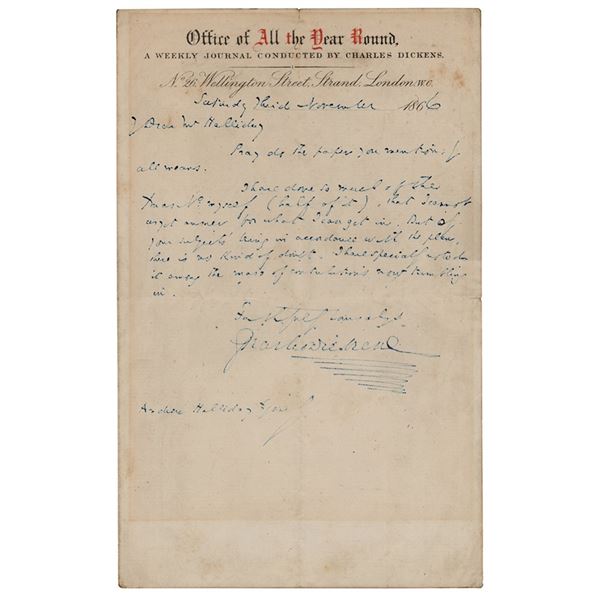 Office of All the Year Round,
A WEEKLY JOURNAL CONDUCTED BY CHARLES DICKENS.
No. 26, Wellington Street, Strand, London, W.C.
Saturday Third November 1866
My Dear Mr Halliday
Pray do the paper you mention, by
all means.
I have done so much of the
Xmas No. myself (half of it), that I cannot
get in. But of
your subject's being in accordance with the plan,
there is no kind of doubt. I have specially noted
it among the mass of contributions now tumbling
in.
Faithfully Yours always
Charles Dickens
Andrew Halliday Esquire